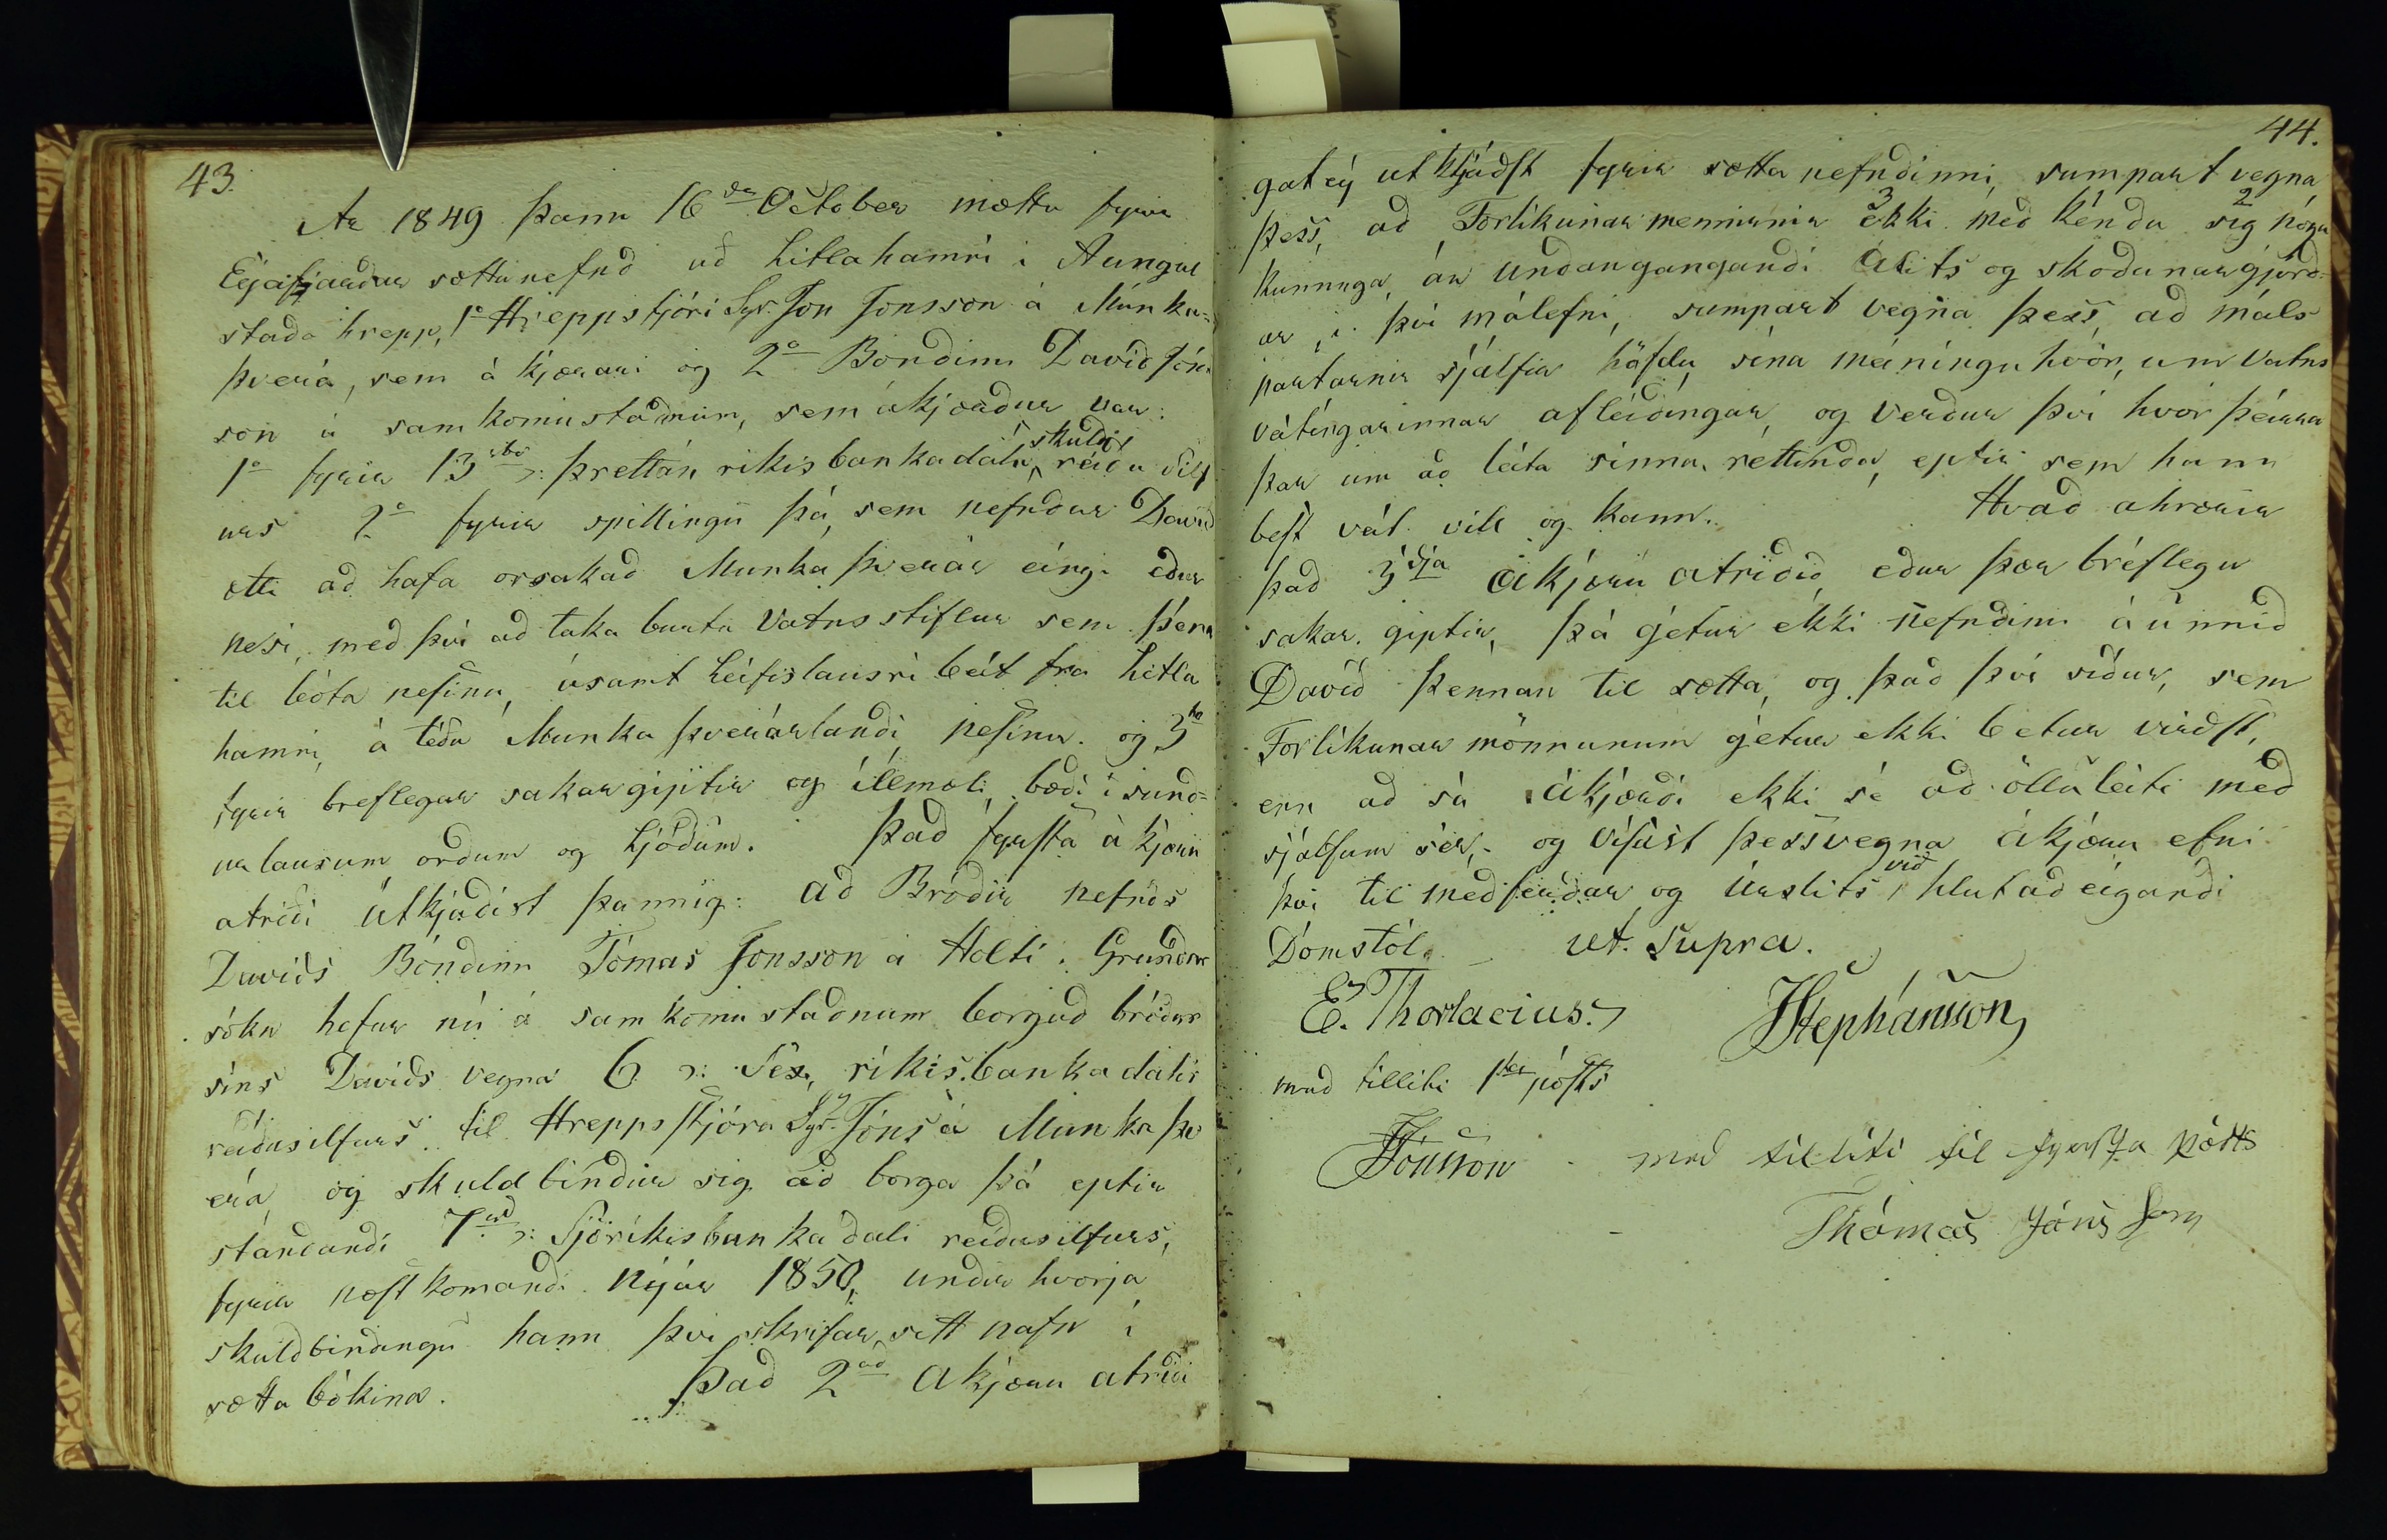 43.
Ar 1849 þann 16da October mættu fyrir
Eyjafjardar sættanefnd ad Litlahamri i Aungul
stada hrepp, 1o Hreppstjóri Sgr. Jon Jonsson á Múnka-
þverá, sem á kjærari og 2o Bondinn Davíd Jóns
son á samkomustadnum, sem ákjærdur var:
1o fyrir 13 rbd ɔ: þrettán rikisbankadala skuld reidu silf
urs 2o fyrir spillingu þá, sem nefndur David
ætti ad hafa orsakad Munkaþverár eingi edur
nesi, med því ad taka burtu Vatnsstiflur sem þéna
til bóta nesinu, ásamt leifislausri beit fra Litla
hamri, á tédu Munkaþverárlandi, nesinu. og 3tia
fyrir breflegar sakargiptir og illmæli, bædi i sund-
urlausum ordum og ljódum. Þad fyrsta á kjæru
atridi útkjádist þannig: ad Bródir nefnds
Davíds Bóndinn Tómas Jonsson á Holti i Grundar
sókn hefur nú á samkomustadnum borgad bródur
síns Davíds vegna 6 ɔ: Sex, ríkisbankadali
reidusilfurs til Hreppstjóra Sgr. Jóns á Munkaþv
erá, og skuldbindur sig ad borga þá eptir
standandi 7 rbd ɔ: Sjö ríkisbankadali reidusilfurs,
fyrir næstkomandi Nyjár 1850, undir hvorja
skuldbindingu hann því skrifar sitt nafn í
sættabókina. Þad 2ad Akjæru atridi
44.
gat ey utkljádst fyrir sættanefndinni, sumpart vegna
þess, ad Forlíkunarmennirnir 3 ekki med kéndu 2 sig nógu
kunnuga, án undangangandi álits og skodunargjörd-
ar, i því málefni, sumpart vegna þess, ad máls
partarnir sjálfir höfdu sína meiningu hvör, um Vatns
veitingarinnar afleidingar, og verdur því hvor þeirra
þar um ad leita sinna réttinda, eptir sem hann
best veit vill og kann. Hvad ahrærir
þad 3dja ákjæru atridid, edur þær bréflegu
sakar giptir, þá gétur ekki nefndin áunnid
Davíd þennan til sætta, og þad því sídur, sem
Forlíkunar mönnunum gétur ekki betur virdst,
enn ad sá ákjærdi ekki sé ad öllu leiti med
sjálfum sér, og vísast þessvegna ákjæru efni
því til medferdar og úrslits vid hlutadeigandi
Dómstól. ut Supra.
E. Thorlacius. JStephánsson
med tilliti 1ta pósts
JJónsson - med tilliti til fyrsta pósts
Thómas Jóns Son